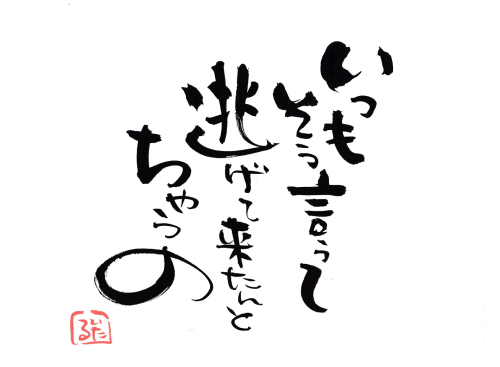 いつも
そう言って
逃げて来たんと
ちゃうの
いたる